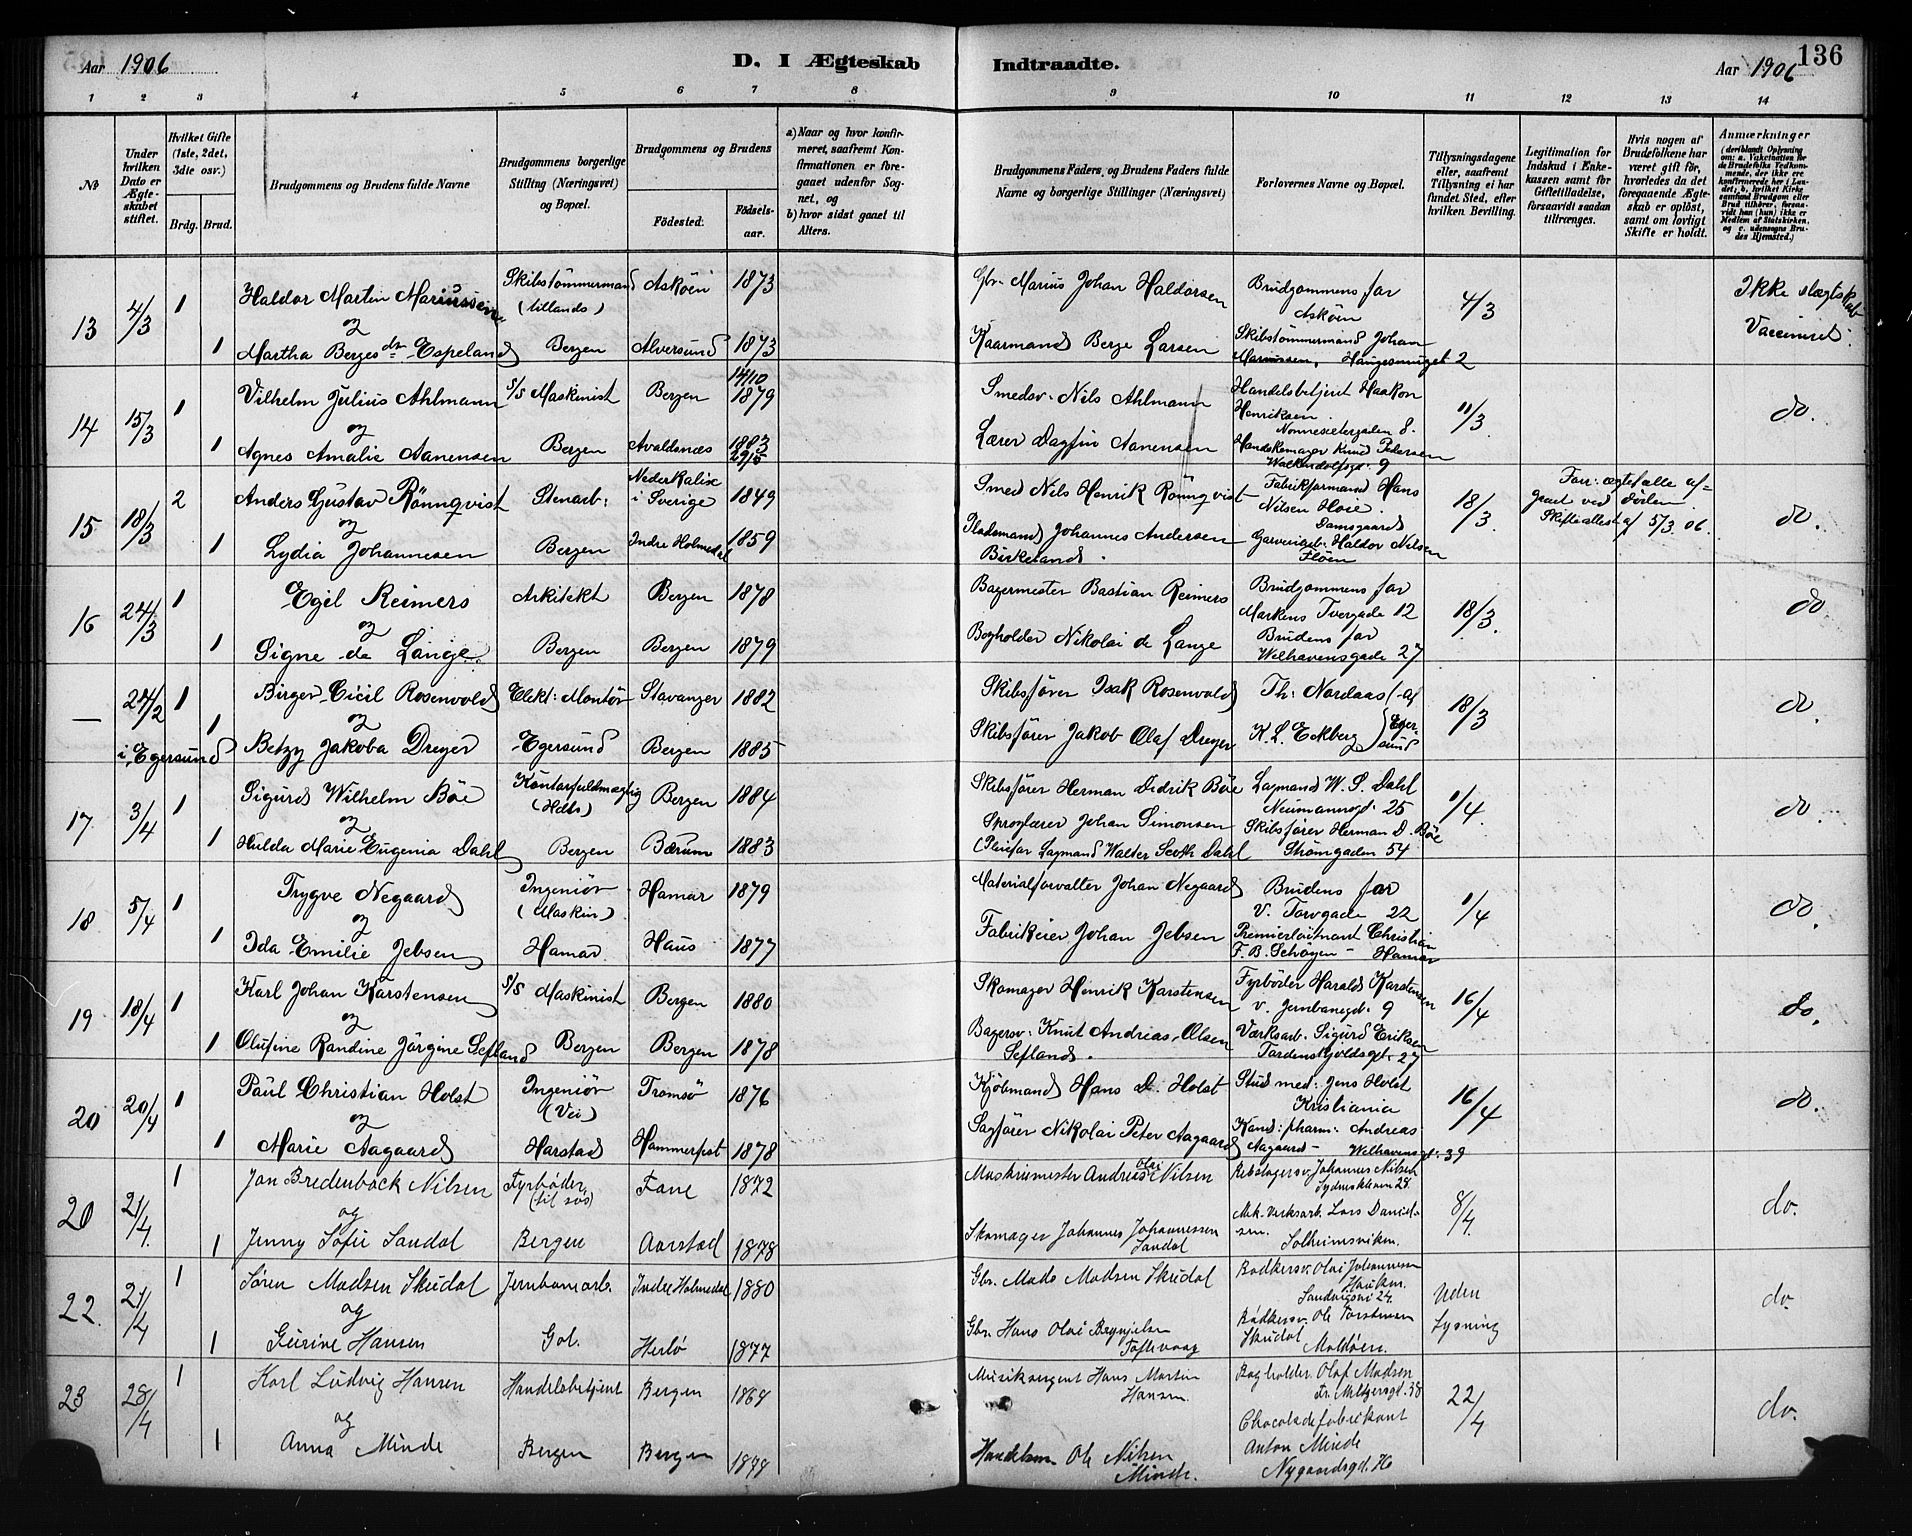 136
Aar 1906
D. I Ægteskab Indtraadte.
Aar 1906
1 2 3 4 5 6 7 8 9 10 11 12 13 14
№
Under hvilken Dato er Ægteskabet stiftet.
Hvilket Gifte (1ste, 2det, 3die osv.)
Brdg. Brud.
Brudgommens og Brudens fulde Navne
Brudgommens borgerlige Stilling (Næringsvei) og Bopæl.
Brudgommens og Brudens
Fødested.
Fødselsaar.
a) Naar og hvor konfirmeret, saafremt Konfirmationen er foregaaet udenfor Sognet, og
b) hvor sidst gaaet til Alters.
Brudgommens Faders, og Brudens Faders fulde Navne og borgerlige Stillinger (Næringsvei)
Forlovernes Navne og Bopæl.
Tillysningsdagene eller, saafremt Tillysning ei har fundet Sted, efter hvilken Bevilling.
Legitimation for Indskud i Enkekassen samt for Giftetilladelse, forsaavidt saadan tiltrænges.
Hvis nogen af Brudefolkene har været gift før, hvorledes da det foregaaende Ægteskab er opløst, samt om lovligt Skifte er holdt.
Anmærkninger
(deriblandt Oplysning om: a. Vakcination for de Brudefolks Vedkommende, der ikke ere konfirmerede her i Landet; b. hvilket Kirkesamfund Brudgom eller Brud tilhører, forsavidt han (hun) ikke er Medlem af Statskirken, og c. udensogns Brudes Hjemsted.)
13 4/3 1 Haldor Martin Mariussen Skibstömmermand (tillands) Asköen 1873 Gbr. Marius Johan Haldorsen Brudgommens far Asköen 4/3 Ikke slægtskab
og
1 Martha Berges dtr Espeland Bergen Alversund 1873 Kaarmand Berge Larsen Skibstömmermand Johan Mariussen, Haugesmuget 2 Vaccineret.
14 15/3 1 Vilhelm Julius Ahlmann S/S Maskinist Bergen 14/10 1879 Smedsv. Nils Ahlmann Handelsbetjent Haakon Henriksen Nonnesetergaden 8. 11/3 do.
og
1 Agnes Amalie Aanensen Bergen Avaldsnæs 1883 Lærer Dagfin Aanensen Handskemager Knud Pedersen Walkendolfsgd. 9
15 18/3 2 Anders Gustav Rönnqvist Stenarb: Nederkalix i Sverige 1849 Smed Nils Henrik Rönnqvist Fabrikformand Hans Nilsen Hoie. Damsgaard 18/3. Forr: ægtefælle afgaaet ved döden Skifteattest af 5/3 06. do.
og
1 Lydia Johannesen Bergen Indre Holmedal 1859 Pladsmand Johannes Andersen Birkeland. Garveriarb. Haldor Nilsen Flöen
16 24/3 1 Egil Reimers Arkitekt Bergen 1878 Bagermester Bastian Reimers Brudgommens far Markens Tvergade 12 18/3. do
og
1 Signe de Lange. Bergen Bergen 1879 Bogholder Nikolai de Lange Brudens far Welhavensgade 27
— 24/2 1 Birger Cicil Rosenvold Elekt: Montör Stavanger 1882 Skibsförer Isak Rosenvold Th: Nordaas 18/3 do.
og
i Egersund 1 Betzy Jakoba Dreyer Egersund Bergen 1885 Skibsförer Jakob Olaf Dreyer K. L. Eckberg } af Egersund
17 3/4 1 Sigurd Wilhelm Böe Kontorfuldmægtig (Hdls) Bergen 1884 Skibsförer Herman Didrik Böe Lagmand W. S. Dahl Neumannsgd. 25 1/4. do.
og
1 Hulda Marie Eugenia Dahl Bergen Bærum 1883 Sproglærer Johan Simonsen (Pleiefar Lagmand Walter Scoth Dahl Skibsförer Herman D. Böe Strömgaden 54
18 5/4 1 Trygve Negaard Ingeniör (Maskin) Hamar 1879 Materialforvalter Johan Negaard Brudens far V. Torvgade 22 1/4 do.
og
1 Ida Emilie Jebsen Hamar Haus 1877 Fabrikeier Johan Jebsen Premierlöitnant Christian F. B. Schöyen - Hamar
19 18/4 1 Karl Johan Karstensen S/S Maskinist Bergen 1880 Skomager Henrik Karstensen Fyrböder Harald Karstensen v. Jernbanegd. 9 16/4 do.
og
1 Olufine Randine Jörgine Sefland Bergen Bergen 1878 Bagersv: Knut Andreas Olsen Sefland. Værksarb. Sigurd Eriksen Tordenskjoldsgt. 27
20 20/4 1 Paul Christian Holst Ingeniör (Vei) Tromsö 1876 Kjöbmand Hans D. Holst Stud med: Jens Holst Kristiania 16/4 do.
og
1 Marie Aagaard Harstad Hammerfest 1878 Sagförer Nikolai Peter Aagaard Kand: pharm: Andreas Aagaard - Welhavensgt. 39
20 21/4. 1 Jan Bredenbock Nilsen Fyrbøder (til søs) Fane 1872 Maskinmester Andreas Olai Nilsen Rebslagersv. Johannes Nilsen Sydneskleven 28. 8/4. do.
og
1 Jenny Sofie Sandal Bergen Aarstad 1878 Skomager Johannes Johannessen Sandal Mek. Verksarb. Lars Danielsen. Solheimsviken.
22. 21/4 1 Søren Madsen Skudal Jernbanearb. Indre Holmedal 1880 Gbr. Mads Madsen Skudal Bødkersv. Olai Johannessen Sandvigsvei 24. Uden do.
og
1 Gurine Hansen Gol. Herlø 1877 Gbr. Hans Olai Brynjelsen Toftevaag Bødkersv. Ole Torstensen Skudal Maldøen. Lysning
23 28/4 1 Karl Ludvig Hansen Handelsbetjent Bergen 1868 Musiksergent Hans Martin Hansen. Bogholder Olaf Madsen Fr. Meltzersgd. 38 22/4 do.
og
1 Anna Minde Bergen Bergen 1879 Handelsm. Ole Nilsen Minde. Chocoladefabrikant Anton Minde Nygaardsgd.